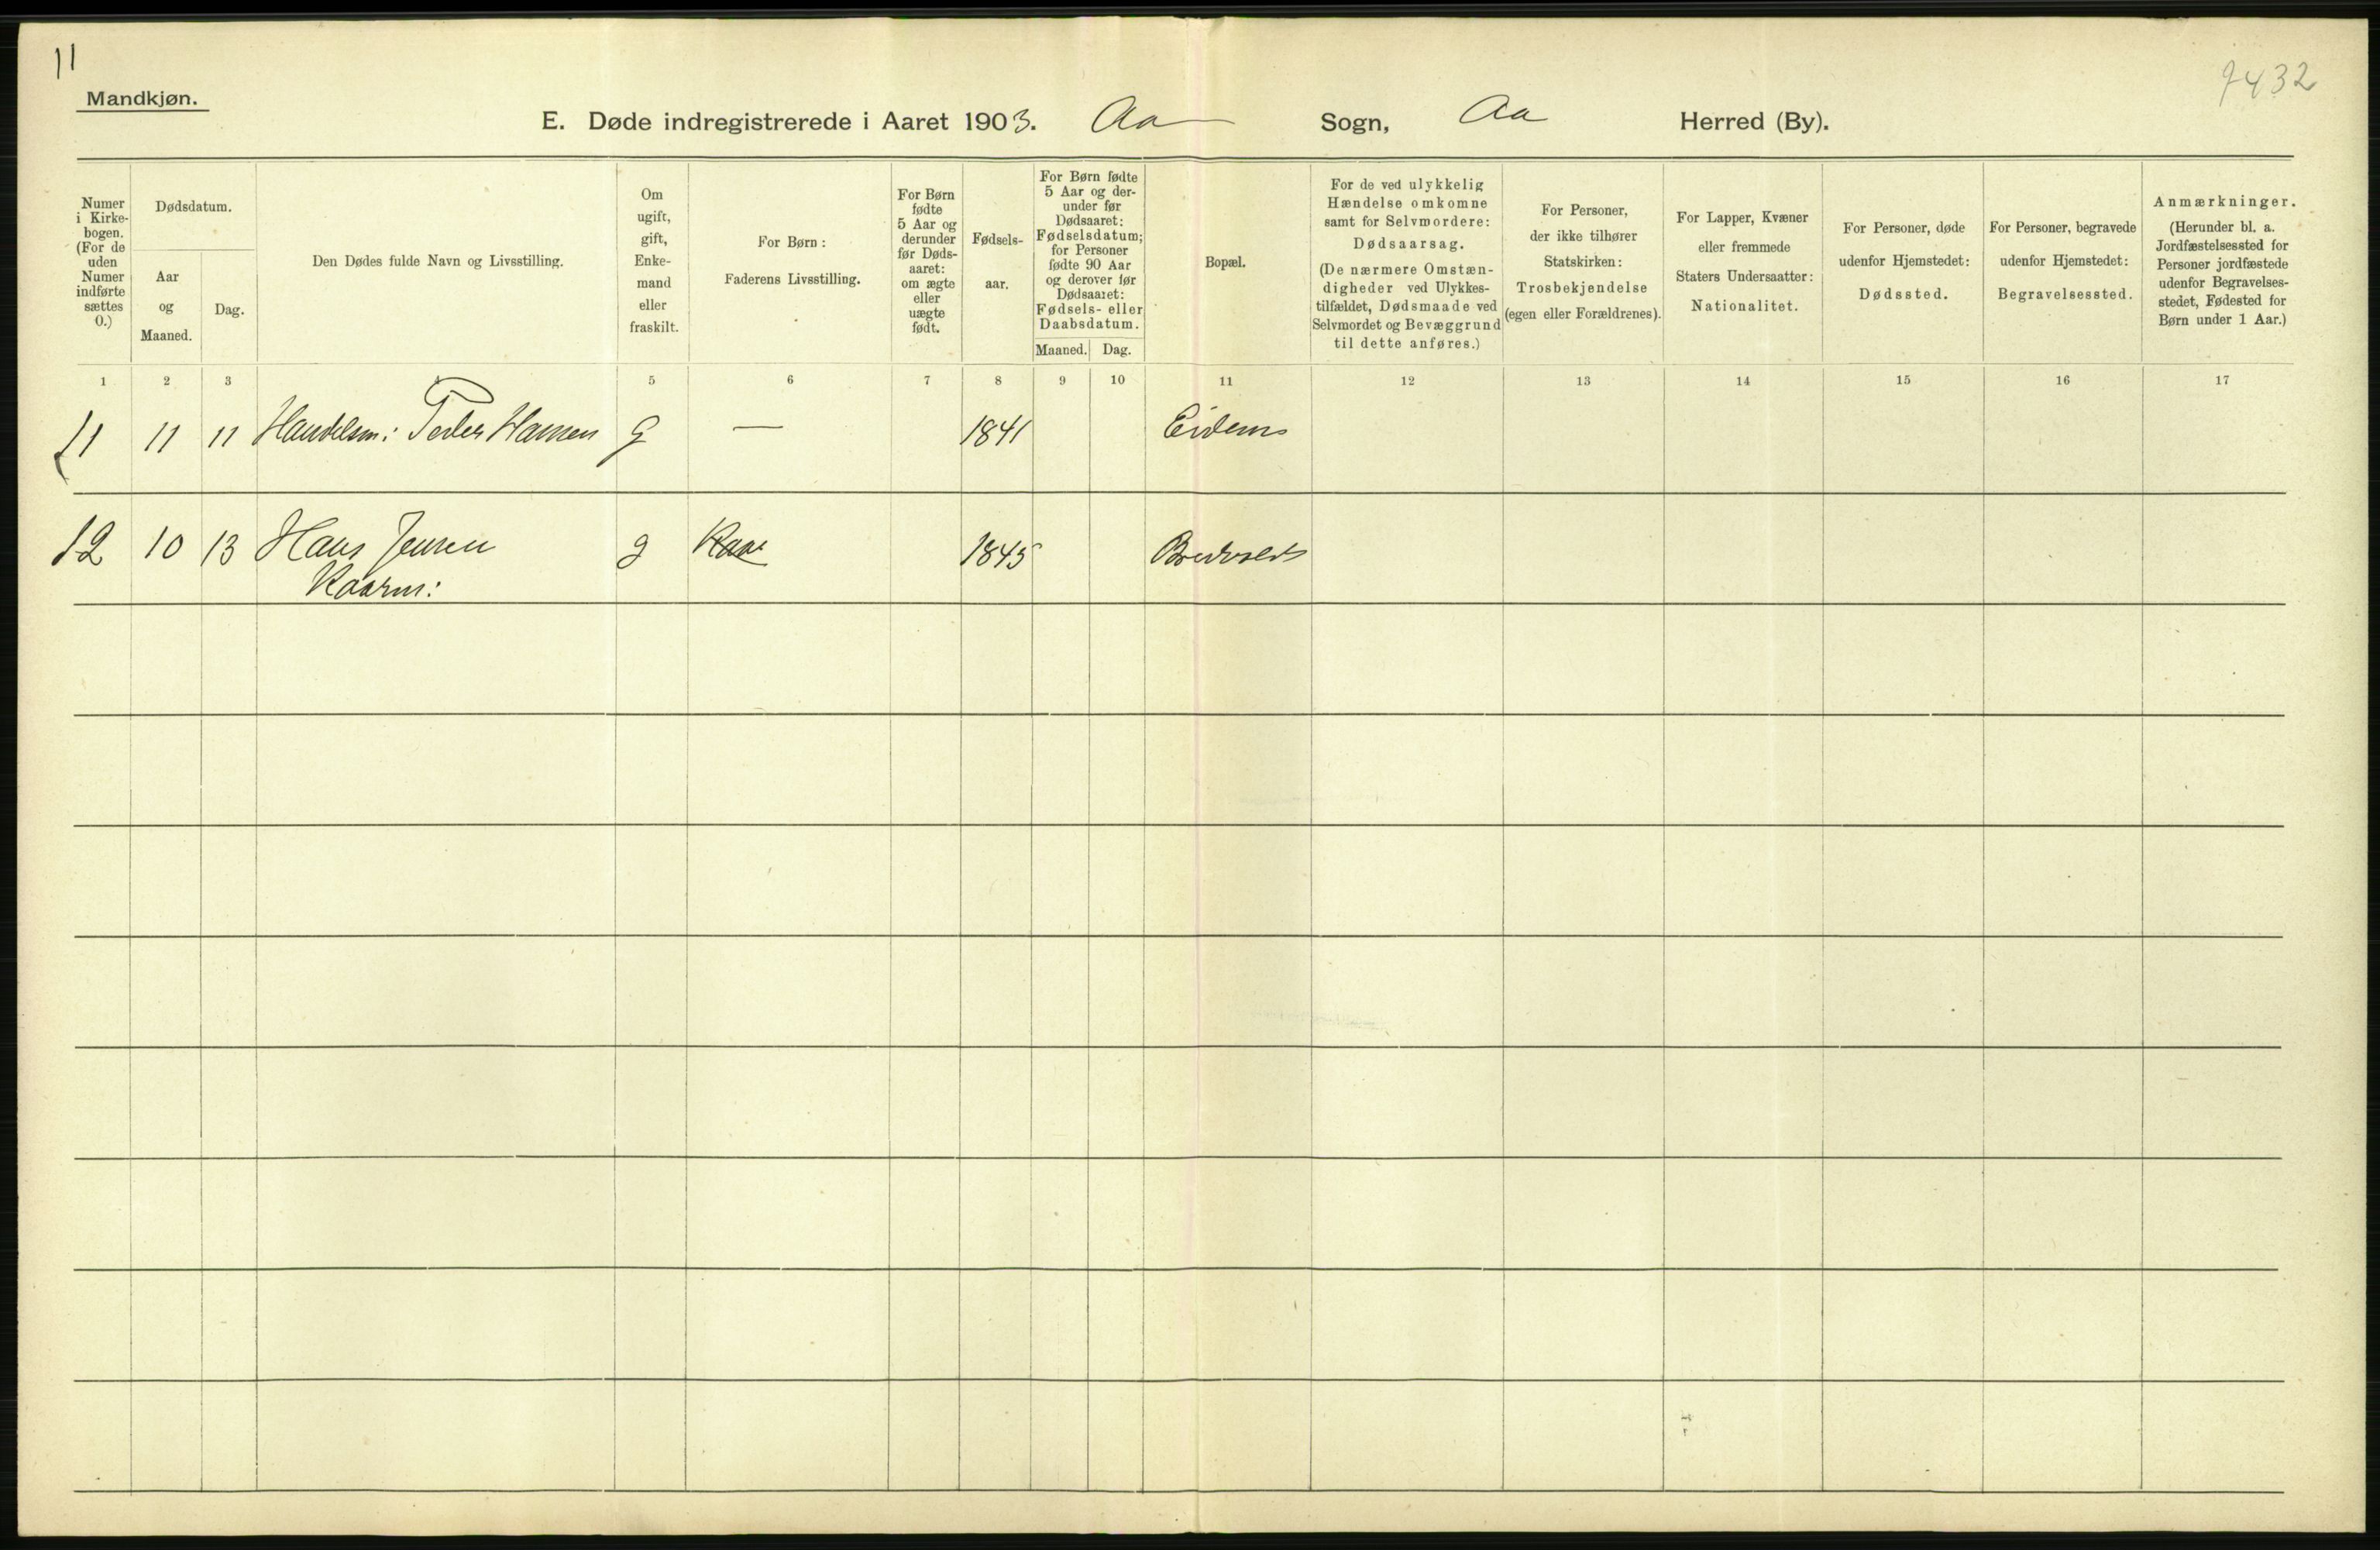 11
7432
Mandkjøn.
E. Døde indregistrerede i Aaret 1903. Aa Sogn, Aa Herred (By).
Numer
i Kirke-
bogen.
(For de
uden
Numer
indførte
sættes
0.)
Dødsdatum.
Aar
og
Maaned.
Dag.
Den Dødes fulde Navn og Livsstilling.
Om
ugift,
gift,
Enke-
mand
eller
fraskilt.
For Børn:
Faderens Livsstilling.
For Børn
fødte
5 Aar og
derunder
før Døds-
aaret:
om ægte
eller
uægte
født.
Fødsels-
aar.
For Børn fødte
5 Aar og der-
under før
Dødsaaret:
Fødselsdatum;
for Personer
fødte 90 Aar
og derover før
Dødsaaret:
Fødsels- eller
Daabsdatum.
Maaned. Dag.
Bopæl.
For de ved ulykkelig
Hændelse omkomne
samt for Selvmordere:
Dødsaarsag.
(De nærmere Omstæn-
digheder ved Ulykkes-
tilfældet, Dødsmaade ved
Selvmordet og Bevæggrund
til dette anføres.)
For Personer,
der ikke tilhører
Statskirken:
Trosbekjendelse
(egen eller Forældrenes).
For Lapper, Kvæner
eller fremmede
Staters Undersaatter:
Nationalitet.
For Personer, døde
udenfor Hjemstedet:
Dødssted.
For Personer, begravede
udenfor Hjemstedet:
Begravelsessted.
Anmærkninger.
(Herunder bl. a.
Jordfæstelsessted for
Personer jordfæstede
udenfor Begravelses-
stedet, Fødested for
Børn under 1 Aar.)
1 2 3 4 5 6 7 8 9 10 11 12 13 14 15 16 17
11 11 11 Handelsm: Peder Hansen G — 1841 Eidem
12 10 13 Hans Jensen g 1845
Kaarm: